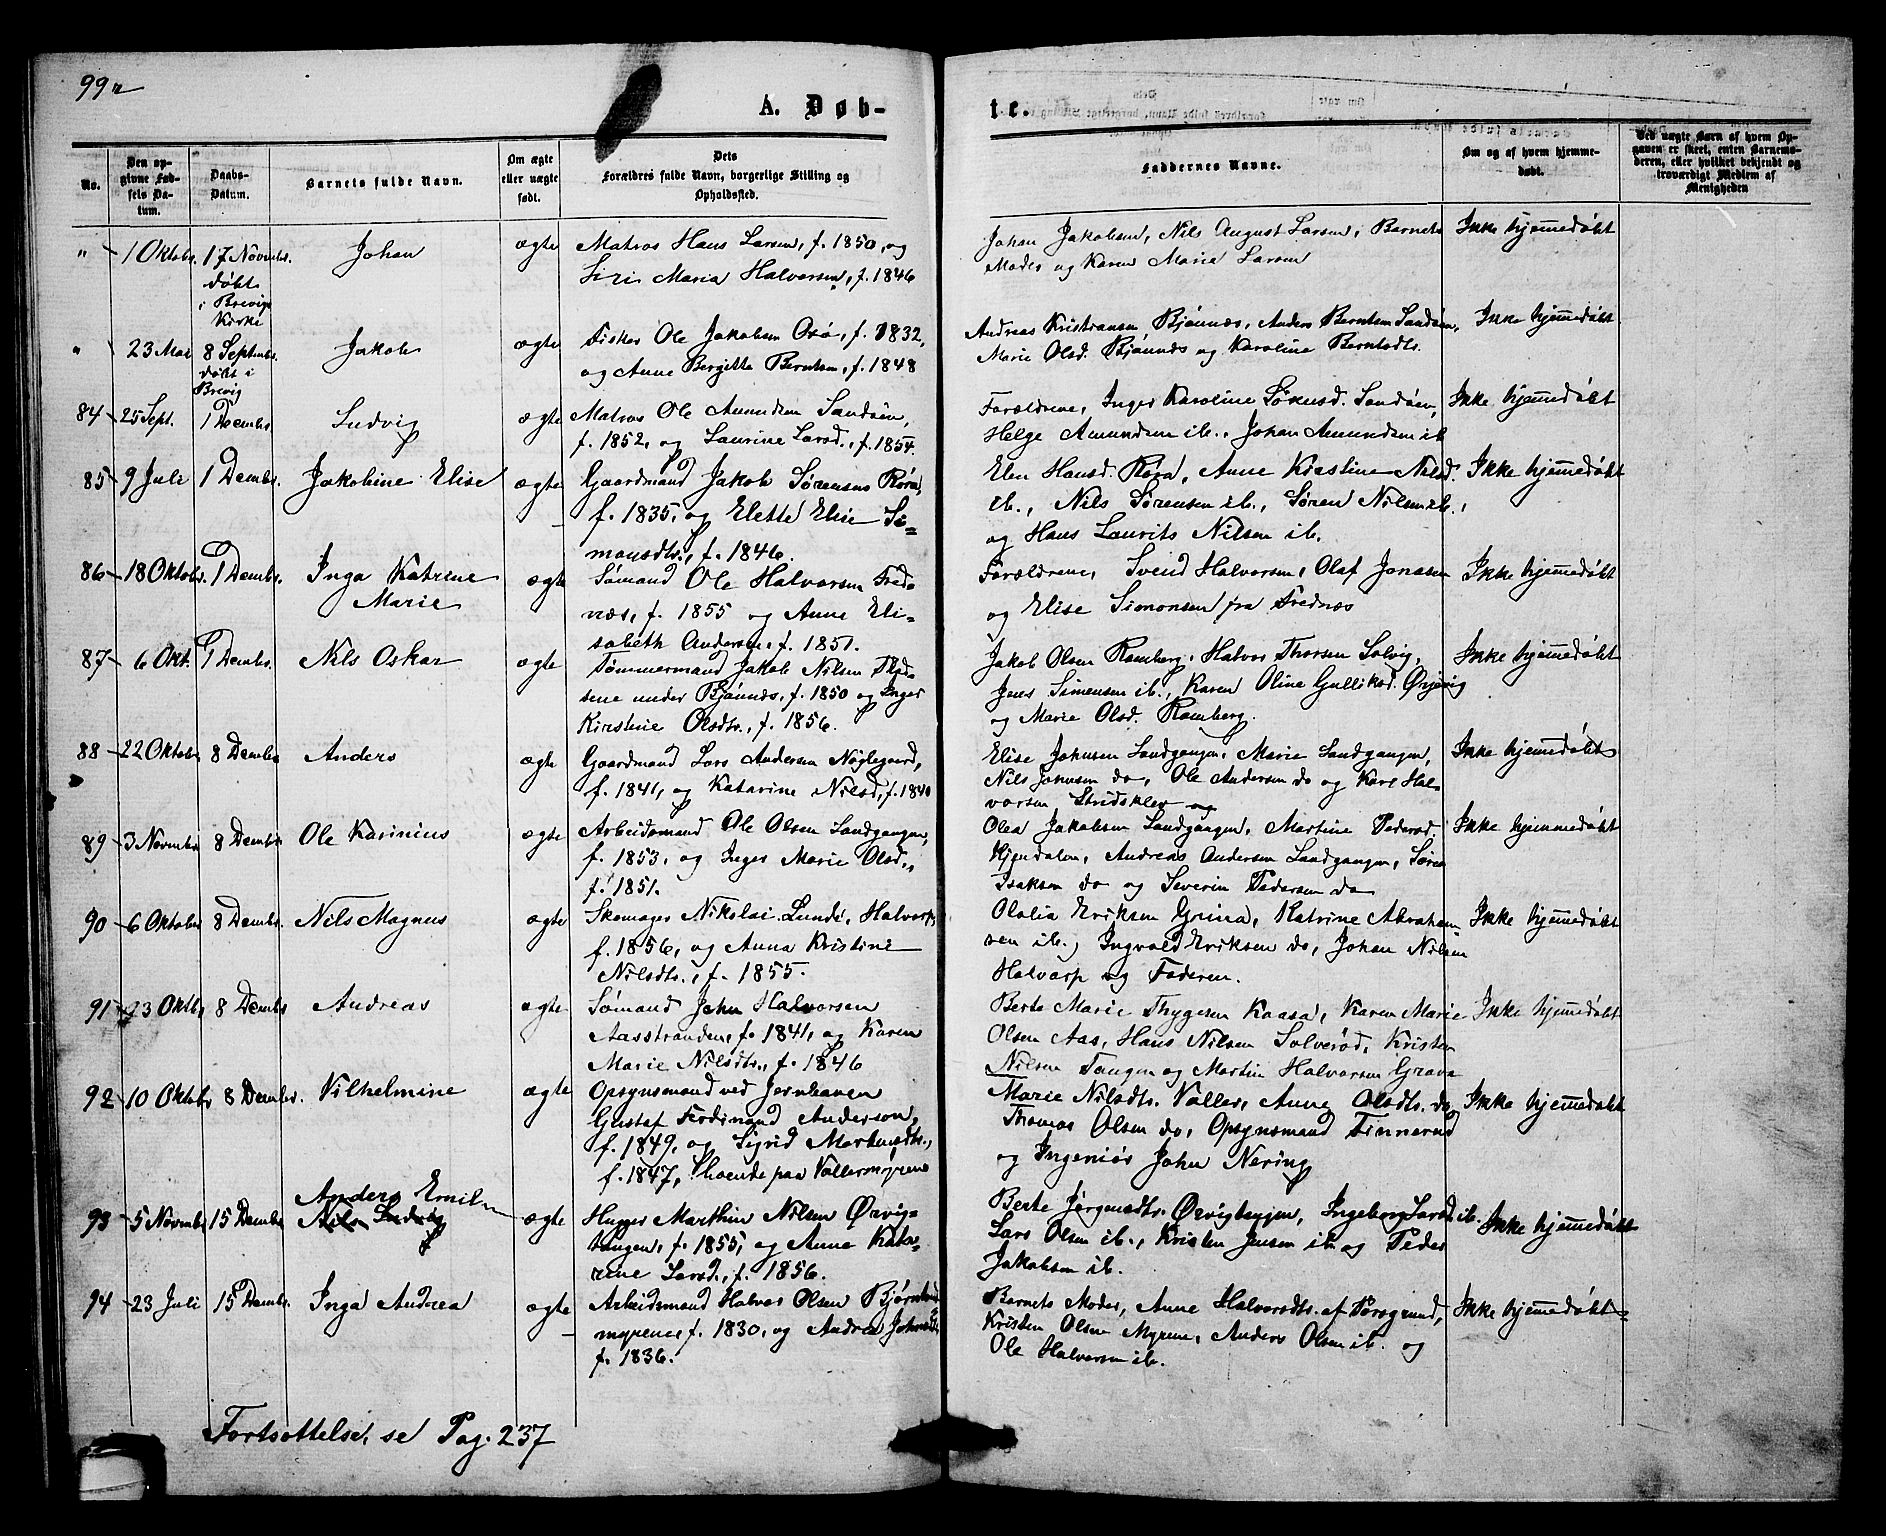 99a
A. Døb-
te.
No.
Den op-
givne Fød-
sels Da-
tum.
Daabs-
Datum.
Barnets fulde Navn.
Om ægte
eller uægte
født.
Dets
Forældres fulde Navn, borgerlige Stilling og
Opholdssted.
Faddernes Navne.
Om og af hvem hjemme-
døbt.
Ved uægte Børn af hvem Op-
gaven er skeet, enten Barnemo-
deren, eller hvilket bekjendt og
troværdigt Medlem af
Menigheden
" 1 Oktobr. 17 Novmbr. Johan ægte Matros Hans Larsen, f. 1850, og
døbt
i Brevigs
Kirke
Siri Maria Halvorsen, f. 1846
Johan Jakobsen, Nils August Larsen, Barnets
Moder og Karen Marie Larsen
Ikke hjemmedøbt
" 23 Mai 8 Septmbr. Jakob ægte Fisker Ole Jakobsen Osø, f. 1832,
døbt i
Brevig
og Anne Bergitte Berntsen, f. 1848
Andreas Kristiansen Bjønnæs, Anders Berntsen Sandøen,
Marie Olsd. Bjønnæs og Karoline Berntsdtr.
Ikke hjemmedøbt
84 25 Sept. 1 Decmbr. Ludvig ægte Matros Ole Amundsen Sandøen,
f. 1852, og Laurine Larsd., f. 1854.
Forældrene, Inger Karoline Sørensd. Sandøen,
Helge Amundsen ib., Johan Amundsen ib
Ikke hjemmedøbt
85 9 Juli 1 Decmbr. Jakobine Elise ægte Gaardmand Jakob Sørensens Røra,
f. 1835, og Elette Elise Si-
monsdtr., f. 1846.
Elen Hansd. Røra, Anne Kirstine Nilsd.
ib., Nils Sørensen ib., Søren Nilsen ib.,
og Hans Laurits Nilsen ib.
Ikke hjemmedøbt
86 18 Oktobr. 1 Decmbr. Inga Katrine
Marie
ægte Sømand Ole Halvorsen Fred-
næs, f. 1855 og Anne Eli-
sabeth Andersen, f. 1851.
Forældrene, Svend Halvorsen, Olaf Jonasen
og Elise Simonsen fra Frednæs
Ikke hjemmedøbt
87 6 Okt. 1 Decmbr. Nils Oskar ægte Tømmermand Jakob Nilsen Flød-
sene under Bjønnæs, f. 1850 og Inger
Kirstine Olsdtr., f. 1856.
Jakob Olsen Ramberg, Halvor Thorsen Solvig,
Jens Simensen ib., Karen Oline Gulliksd. Ørvig
og Marie Olsd. Ramberg.
Ikke hjemmedøbt
88 22 Oktobr. 8 Decmbr. Anders ægte Gaardmand Lars Andersen Nøglegaard,
f. 1841, og Katarine Nilsd., f. 1840
Elise Johnsen Landgangen, Marie Landgangen,
Nils Johnsen do, Ole Andersen do og Karl Hal-
vorsen Stridsklev
Ikke hjemmedøbt
89 3 Novmbr. 8 Decmbr. Ole Karinius ægte Arbeidsmand Ole Olsen Landgangen,
f. 1853, og Inger Marie Olsd.,
f. 1851.
Olea Jakobsen Landgangen, Martine Pedersd.
Kjendalen, Andreas Andersen Landgangen, Søren
Isaksen do og Severin Pedersen do
Ikke hjemmedøbt
90 6 Oktober 8 Decmbr. Nils Magnus ægte Skomager Nikolai Lunde, Halvarp,
f. 1856, og Anna Kristine
Nilsdtr., f. 1855.
Olalia Eriksen Grina, Katrine Abraham-
sen ib., Ingvald Eriksen do, Johan Nilsen
Halvarp og Faderen.
Ikke hjemmedøbt
91 23 Oktbr. 8 Decmbr Andreas ægte Sømand John Halvorsen
Aasstranden, f. 1841, og Karen
Marie Nilsdtr., f. 1846
Berte Marie Thygesen Kaasa, Karen Marie
Olsen Aas, Hans Nilsen Solverød, Kristen
Nilsen Tangen og Martin Halvorsen Grava
Ikke hjemmedøbt
92 10 Oktobr 8 Decmbr. Vilhelmine ægte Opsynsmand ved Jernhaven
Gustaf Ferdinand Anderson,
f. 1849, og Sigrid Mortensdtr.,
f. 1847, boende paa Vallermyrene
Marie Nilsdtr. Valler, Anne Olsdtr. do,
Thomas Olsen do, Opsynsmand Finnerud
og Ingeniør John Nering
Ikke hjemmedøbt
93 5 Novmbr 15 Decmbr Anders Emil
Nils Ludvig
ægte Hugger Marthin Nilsen Ørvig-
tangen, f. 1855, og Anne Kata-
rine Larsd., f. 1856.
Berte Jørgensdtr. Ørvigtangen, Ingeborg Larsd. ib.
Lars Olsen ib., Kristen Jensen ib. og Peder
Jakobsen ib.
Ikke hjemmedøbt
94 23 Juli 15 Decmbr. Inga Andrea ægte Arbeidsmand Halvor Olsen Bjørntvedt
myrene, f. 1830, og Andrea Johnsd.,
f. 1836.
Barnets Moder, Anne Halvorsdtr. af Porsgrund,
Kristen Olsen Myrene, Anders Olsen ib. og
Ole Halvorsen ib.
Ikke hjemmedøbt
Fortsættelse, se Pag. 237